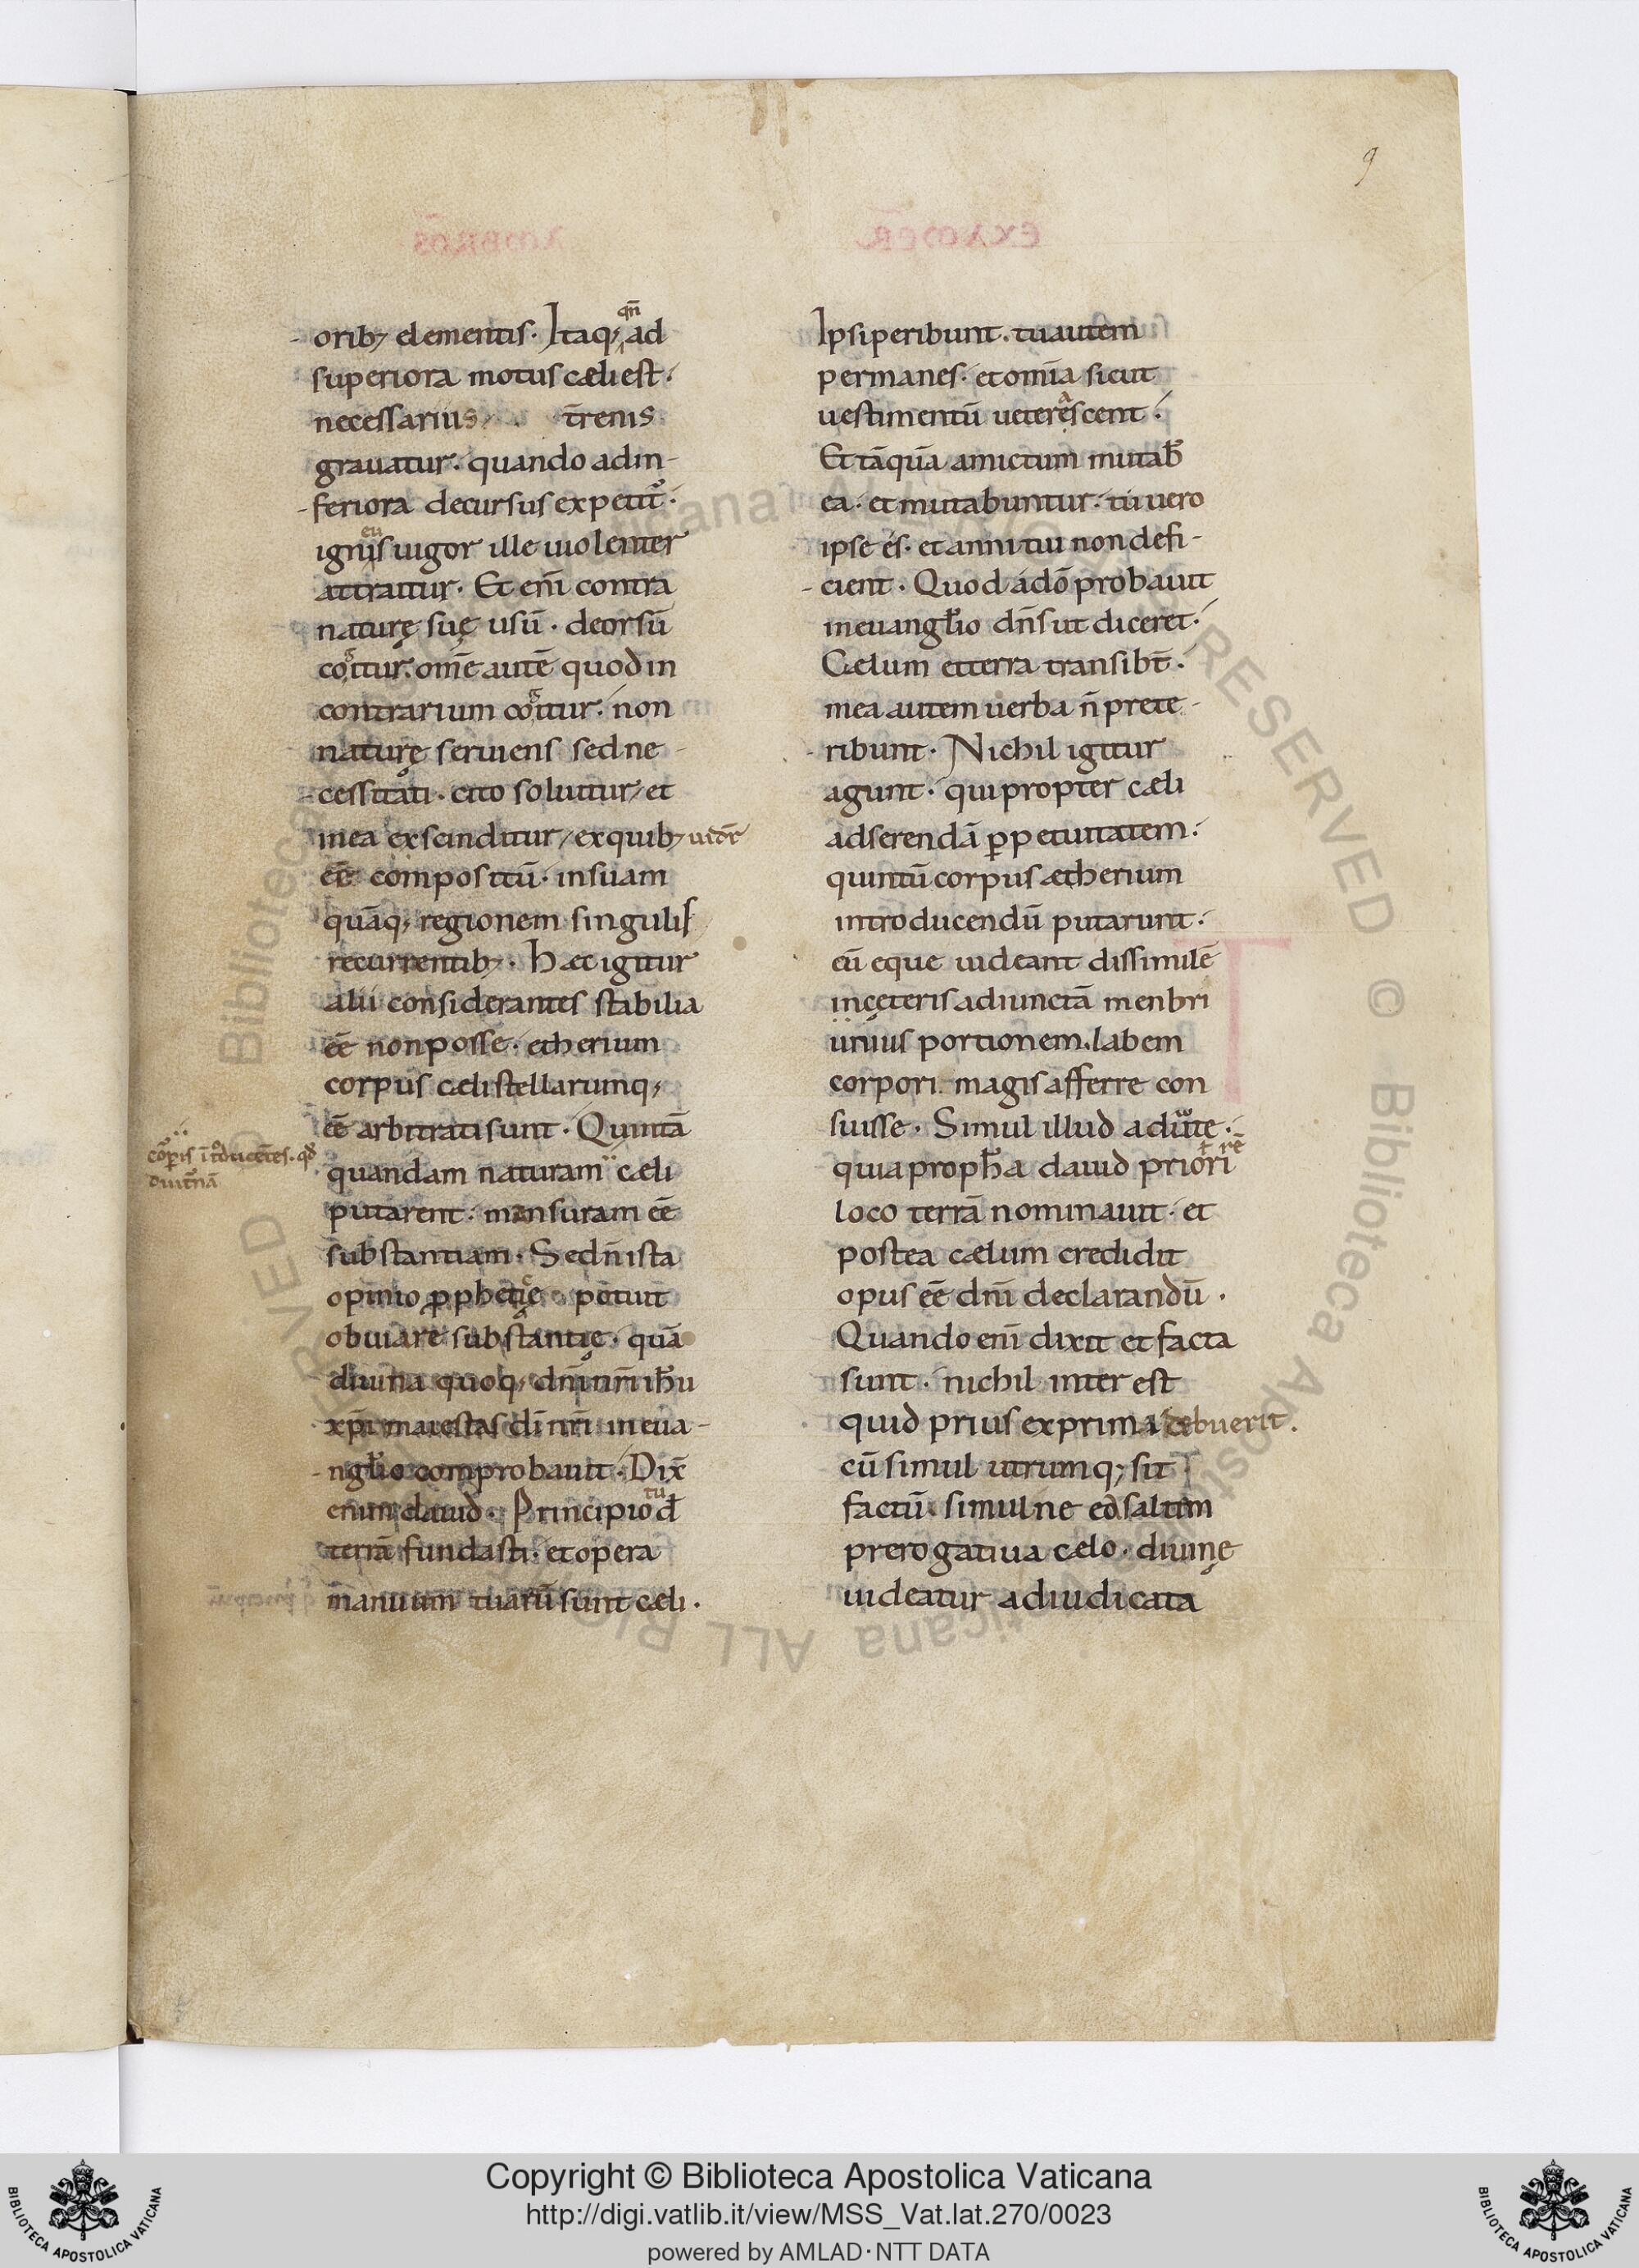 9
orib; elementis. Itaq; qn̄ ad
superiora motus cæli est.
necessarius t̄renis
grauatur. quando ad in-
feriora decursus expetit᷑.
ignis eu uigor ille uiolenter
attraitur. Et eni̅ contra
naturę suę usu̅. deorsu̅
co᷑itur. om̅e aute̅ quod in
contrarium co᷑itur. non
naturę seruiens sed ne-
cessitati. cito soluitur, et
in ea exscinditur, ex quib; uidet᷑
ee̅ compositu̅. in suam
qua̅q; regionem singulis
recurrentib;. Hæc igitur
alii considerantes stabilia
ee̅ non posse. etherium
corpus cæli stellarumq;
ee̅ arbitrati sunt. Quinta̅
quandam naturam cæli
putarent. mansuram ee̅
substantiam. Sed n̅ ista
opinio pphetię potuit
obuiare substantię. qua̅
diuina quoq; dn̅i nr̅i ih̅u
xp̅i maiestas di̅ nr̅i in eua-
ngl̅io comprobauit. Dix̅
enim dauid. Principio tu d̅
terra̅ fundasti. et opera
manuum tuaru̅ sunt cæli.
Ipsi peribunt. tu autem
permanes. et om̅ia sicut
uestimentu̅ ueterescent.
Et ta̅qua̅ amictum mutab̅
ea. et mutabuntur. tu uero
ipse és. et anni tui non defi-
cient. Quod ádo̅ probauit
in euangl̅io dn̅s ut diceret.
Cælum et terra transibt̅.
mea autem uerba n̅ prete-
ribunt. Nichil igitur
agunt. qui propter cæli
adserenda̅ ꝑpetuitatem.
quintu̅ corpus ætherium
introducendu̅ putarunt.
cu̅ eque uideant dissimile̅
in ceteris adiuncta̅ menbri
unius portionem. labem
corpori magis afferre con
suisse. Simul illud adute.
quia proph̅a dauid priori re̅
loco terra̅ nominauit. et
postea cælum credidit
opus ee̅ dn̅i declarandu̅.
Quando eni̅ dixit et facta
sunt. nichil inter est
quid prius exprimi debuerit.
cu̅ simul utrumq; sit
factu̅. simul ne eo saltim
prerogatiua cælo. diuinę
uideatur adiudicata
Copyright © Biblioteca Apostolica Vaticana
http://digi.vatlib.it/view/MSS_Vat.lat.270/0023
powered by AMLAD·NTT DATA
BIBLIOTECA APOSTOLICA VATICANA
BIBLIOTECA APOSTOLICA VATICANA